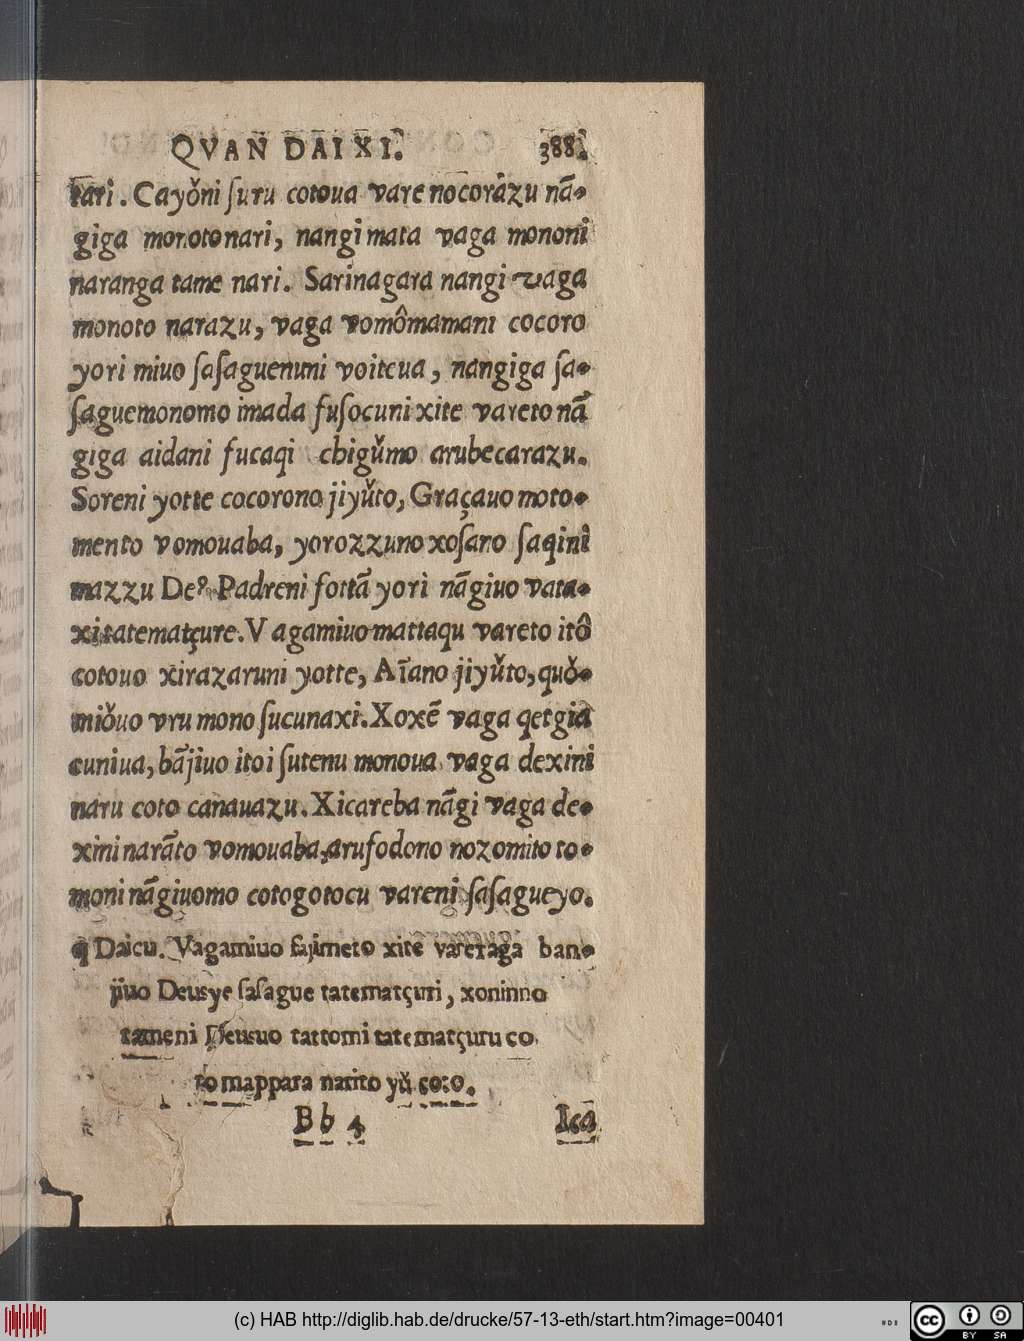 QVAN DAI XI. 388.
tari. Cayǒni ſuru cotoua vare nocorâzu nã-
giga monotonari, nangi mata vaga mononi
naranga tame nari. Sarinagara nangi vaga
monoto narazu, vaga vomômamani cocoro
yori miuo ſaſaguenuni voiteua, nangiga ſa-
ſaguemonomo imada fuſocuni xite vareto nã
giga aidani fucaqi chigǔmo arubecarazu.
Soreni yotte cocorono jiyǔto, Graçauo moto-
mento vomouaba, yorozzuno xoſaro ſaqini
mazzu De⁹ Padreni fottã yori nãgiuo vata-
xitatematçure. Vagamiuo mattaqu vareto itô
cotouo xirazaruni yotte, Aĩano jiyǔto, quǒ-
miǒuo vru mono ſucunaxi. Xoxẽ vaga qetgia
cuniua, bãjiuo itoi ſutenu monoua vaga dexini
naru coto canauazu. Xicareba nãgi vaga de-
xini narãto vomouaba, arufodono nozomito to-
moni nãgiuomo cotogotocu vareni ſaſagueyo.
¶ Daicu. Vagamiuo fajimeto xite vareraga ban-
jiuo Deusye ſaſague tatematçuri, xoninno
tameni Deusuo tattomi tatematçuru co
to mappara narito yǔ coto.
Bb 4 Ica
(c) HAB http://diglib.hab.de/drucke/57-13-eth/start.htm?image=00401
cc BY SA